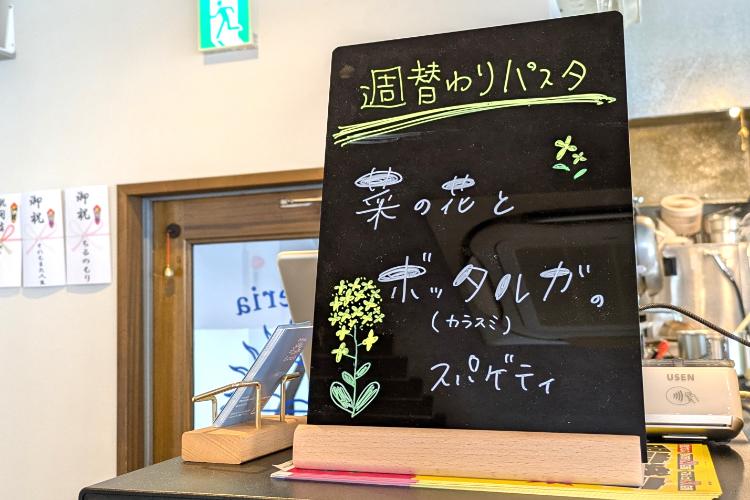 週替わりパスタ
菜の花と
ボッタルガの
(カラスミ)
スパゲティ
御祝
ちるのもり
御祝
eria
USEN